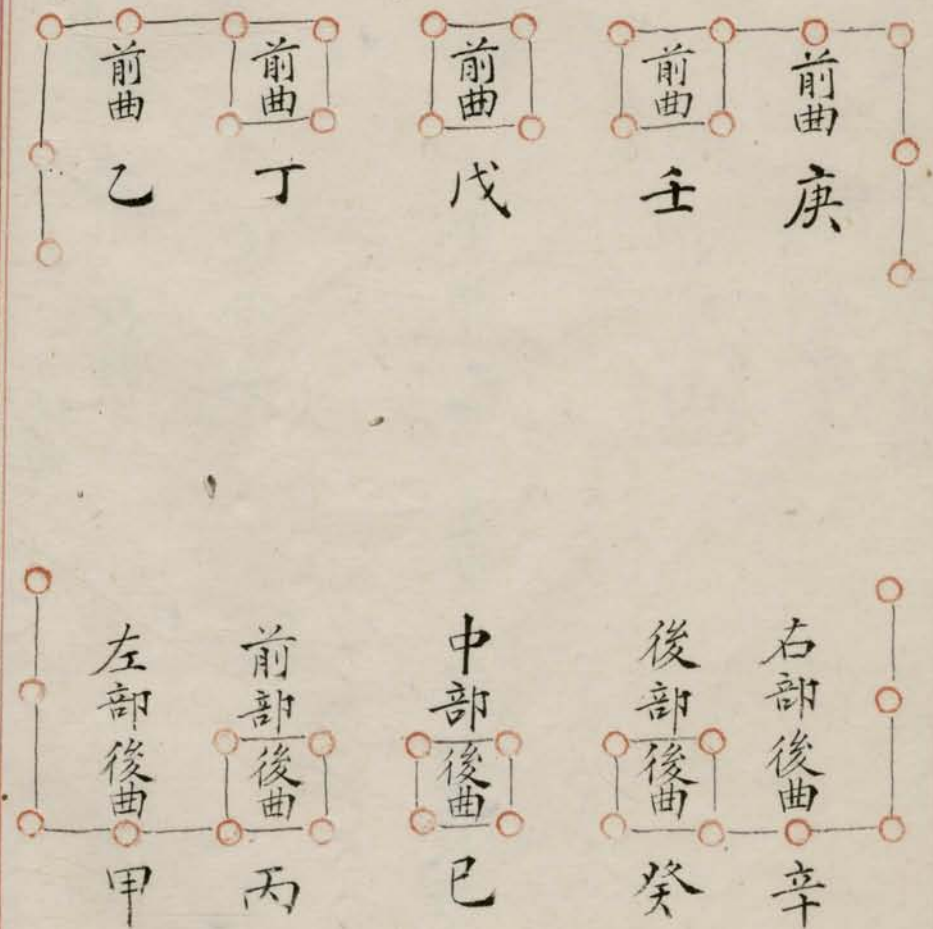 前曲庚
前曲壬
前曲戊
前曲丁
前曲乙
右部後曲辛
後部後曲癸
中部後曲巳
前部後曲丙
左部後曲甲